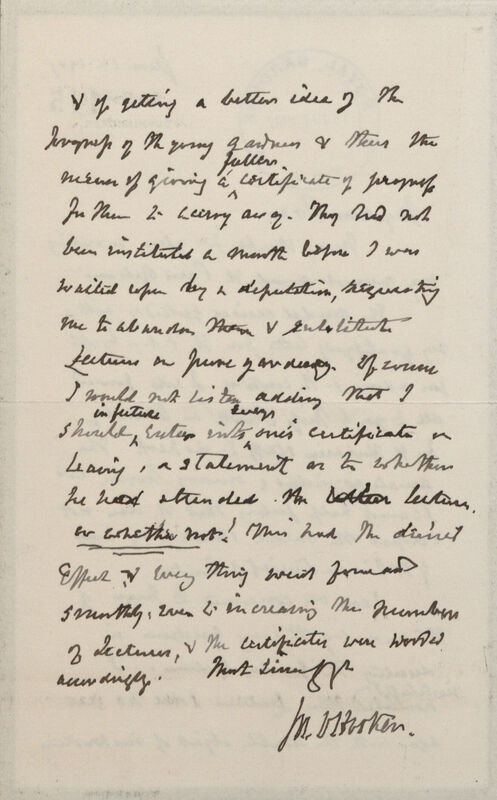 & of getting a better idea of the
Progress of the young Gardners & thus the
fuller
means of giving a ^ certificate of progress
for them to carry away. They had not
been instituted a month before I was
waited upon by a deputation, requesting
me to abandon them & substitute
Lectures on pure gardening. Of course
I would not listen adding that I
in future every
should ^ enter into ^ one's certificate on
leaving, a statement as to whether
he had attended the lectures,
or whether not! This had the desired
Effect & every thing went forward
smoothly, even to increasing the number
of Lectures, & the certificates were worded
accordingly. Most Sincerely
Jos. D Hooker.